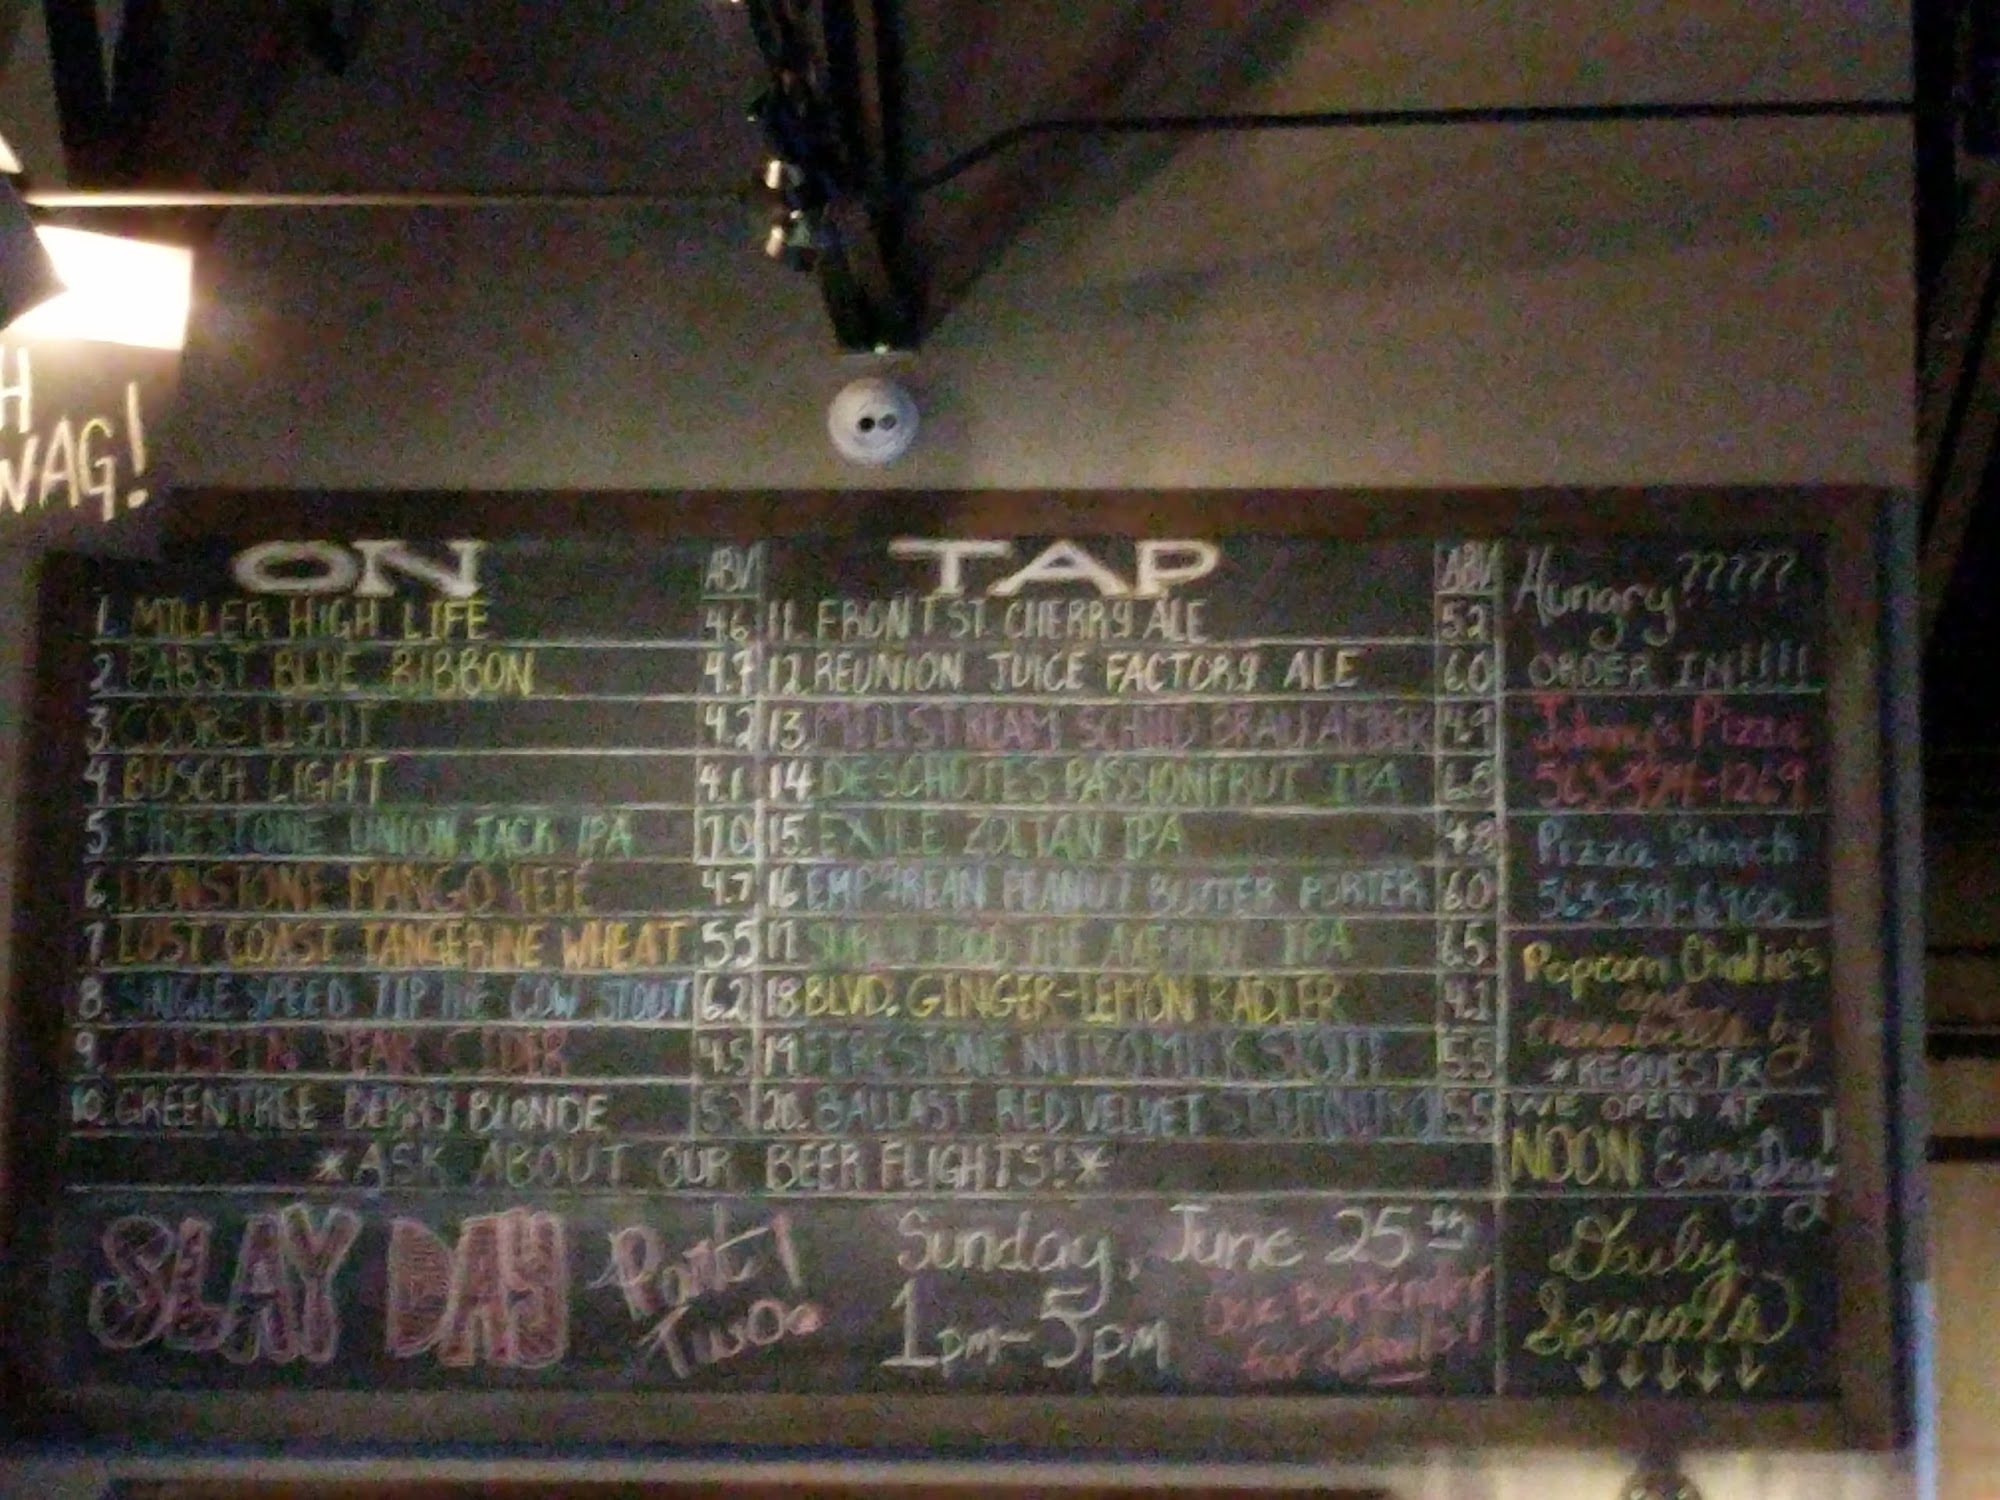 H
WAG!
ON TAP
ABV
ABV
1. MILLER HIGH LIFE 4.6
2. PABST BLUE RIBBON 4.7
3. COORS LIGHT 4.2
4. BUSCH LIGHT 4.1
5. FIRESTONE UNION JACK IPA 7.0
6. LIONSTONE MANGO HEFE 4.7
7. LOST COAST TANGERINE WHEAT 5.5
8. SINGLESPEED TIP THE COW STOUT 6.2
9. CRISPIN PEAR CIDER 4.5
10. GREEN TREE BERRY BLONDE
11. FRONT ST. CHERRY ALE 5.2
12. REUNION JUICE FACTORY ALE 6.0
13. MILLSTREAM SCHILD BRAU AMBER 4.9
14 DESCHUTES PASSIONFRUT IPA 6.8
15. EXILE ZOLTAN IPA 4.8
16 EMPYREAN PEANUT BUTTER PORTER 6.0
17. SURLY TODD THE AXEMAN IPA 6.5
18 BLVD. GINGER-LEMON RADLER 4.1
19. FIRESTONE NITRO MILK STOUT 5.5
20. BALLAST RED VELVET STOUT 5.5
*ASK ABOUT OUR BEER FLIGHTS!*
Hungry?????
ORDER IN!!!!
Johnny's Pizza
Pizza Shack
Popcorn Charlie's
and
by
*REQUEST*
WE OPEN AT
NOON EveryDay!
SLAY DAY
Part
Two
Sunday, June 25th
1pm-5pm
Ask Bartender
for details!
Daily
Specials
↓↓↓↓↓